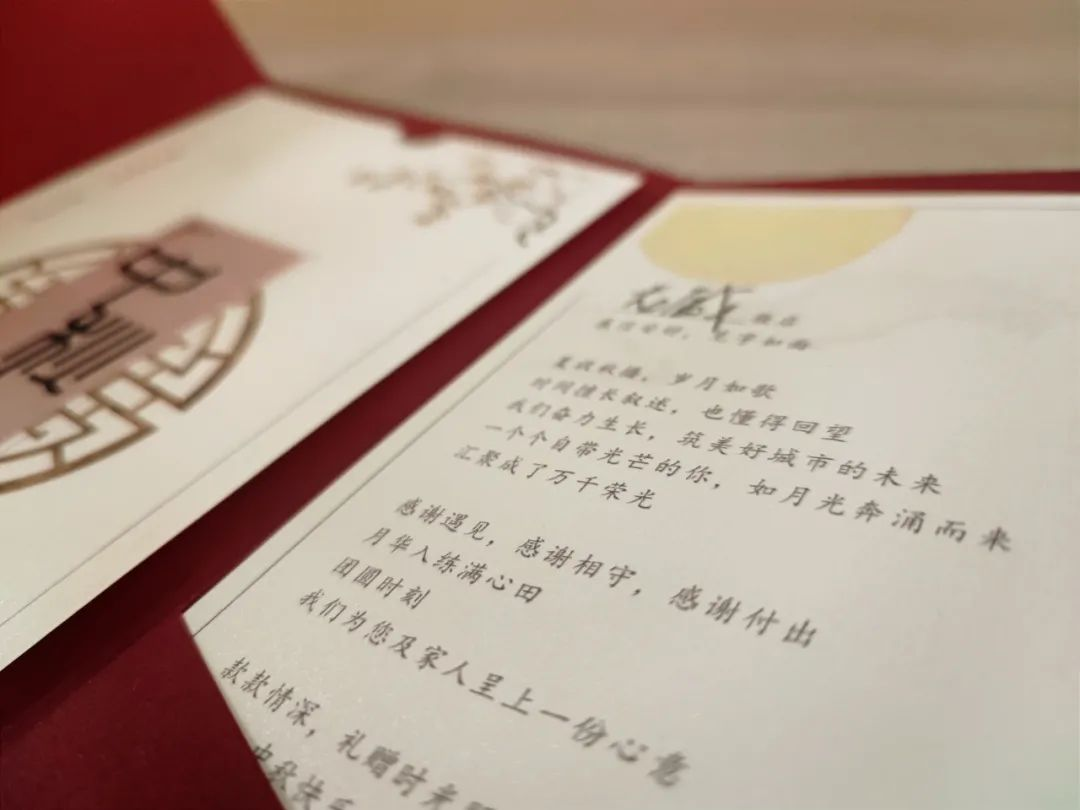 中秋
展信安好，见字如面
夏收秋播，岁月如歌
时间擅长叙述，也懂得回望
我们奋力生长，筑美好城市的未来
一个个自带光芒的你，如月光奔涌而来
汇聚成了万千荣光
感谢遇见，感谢相守，感谢付出
月华入练满心田
团圆时刻
我们为您及家人呈上一份心意
款款情深，礼赠时光
中秋快乐